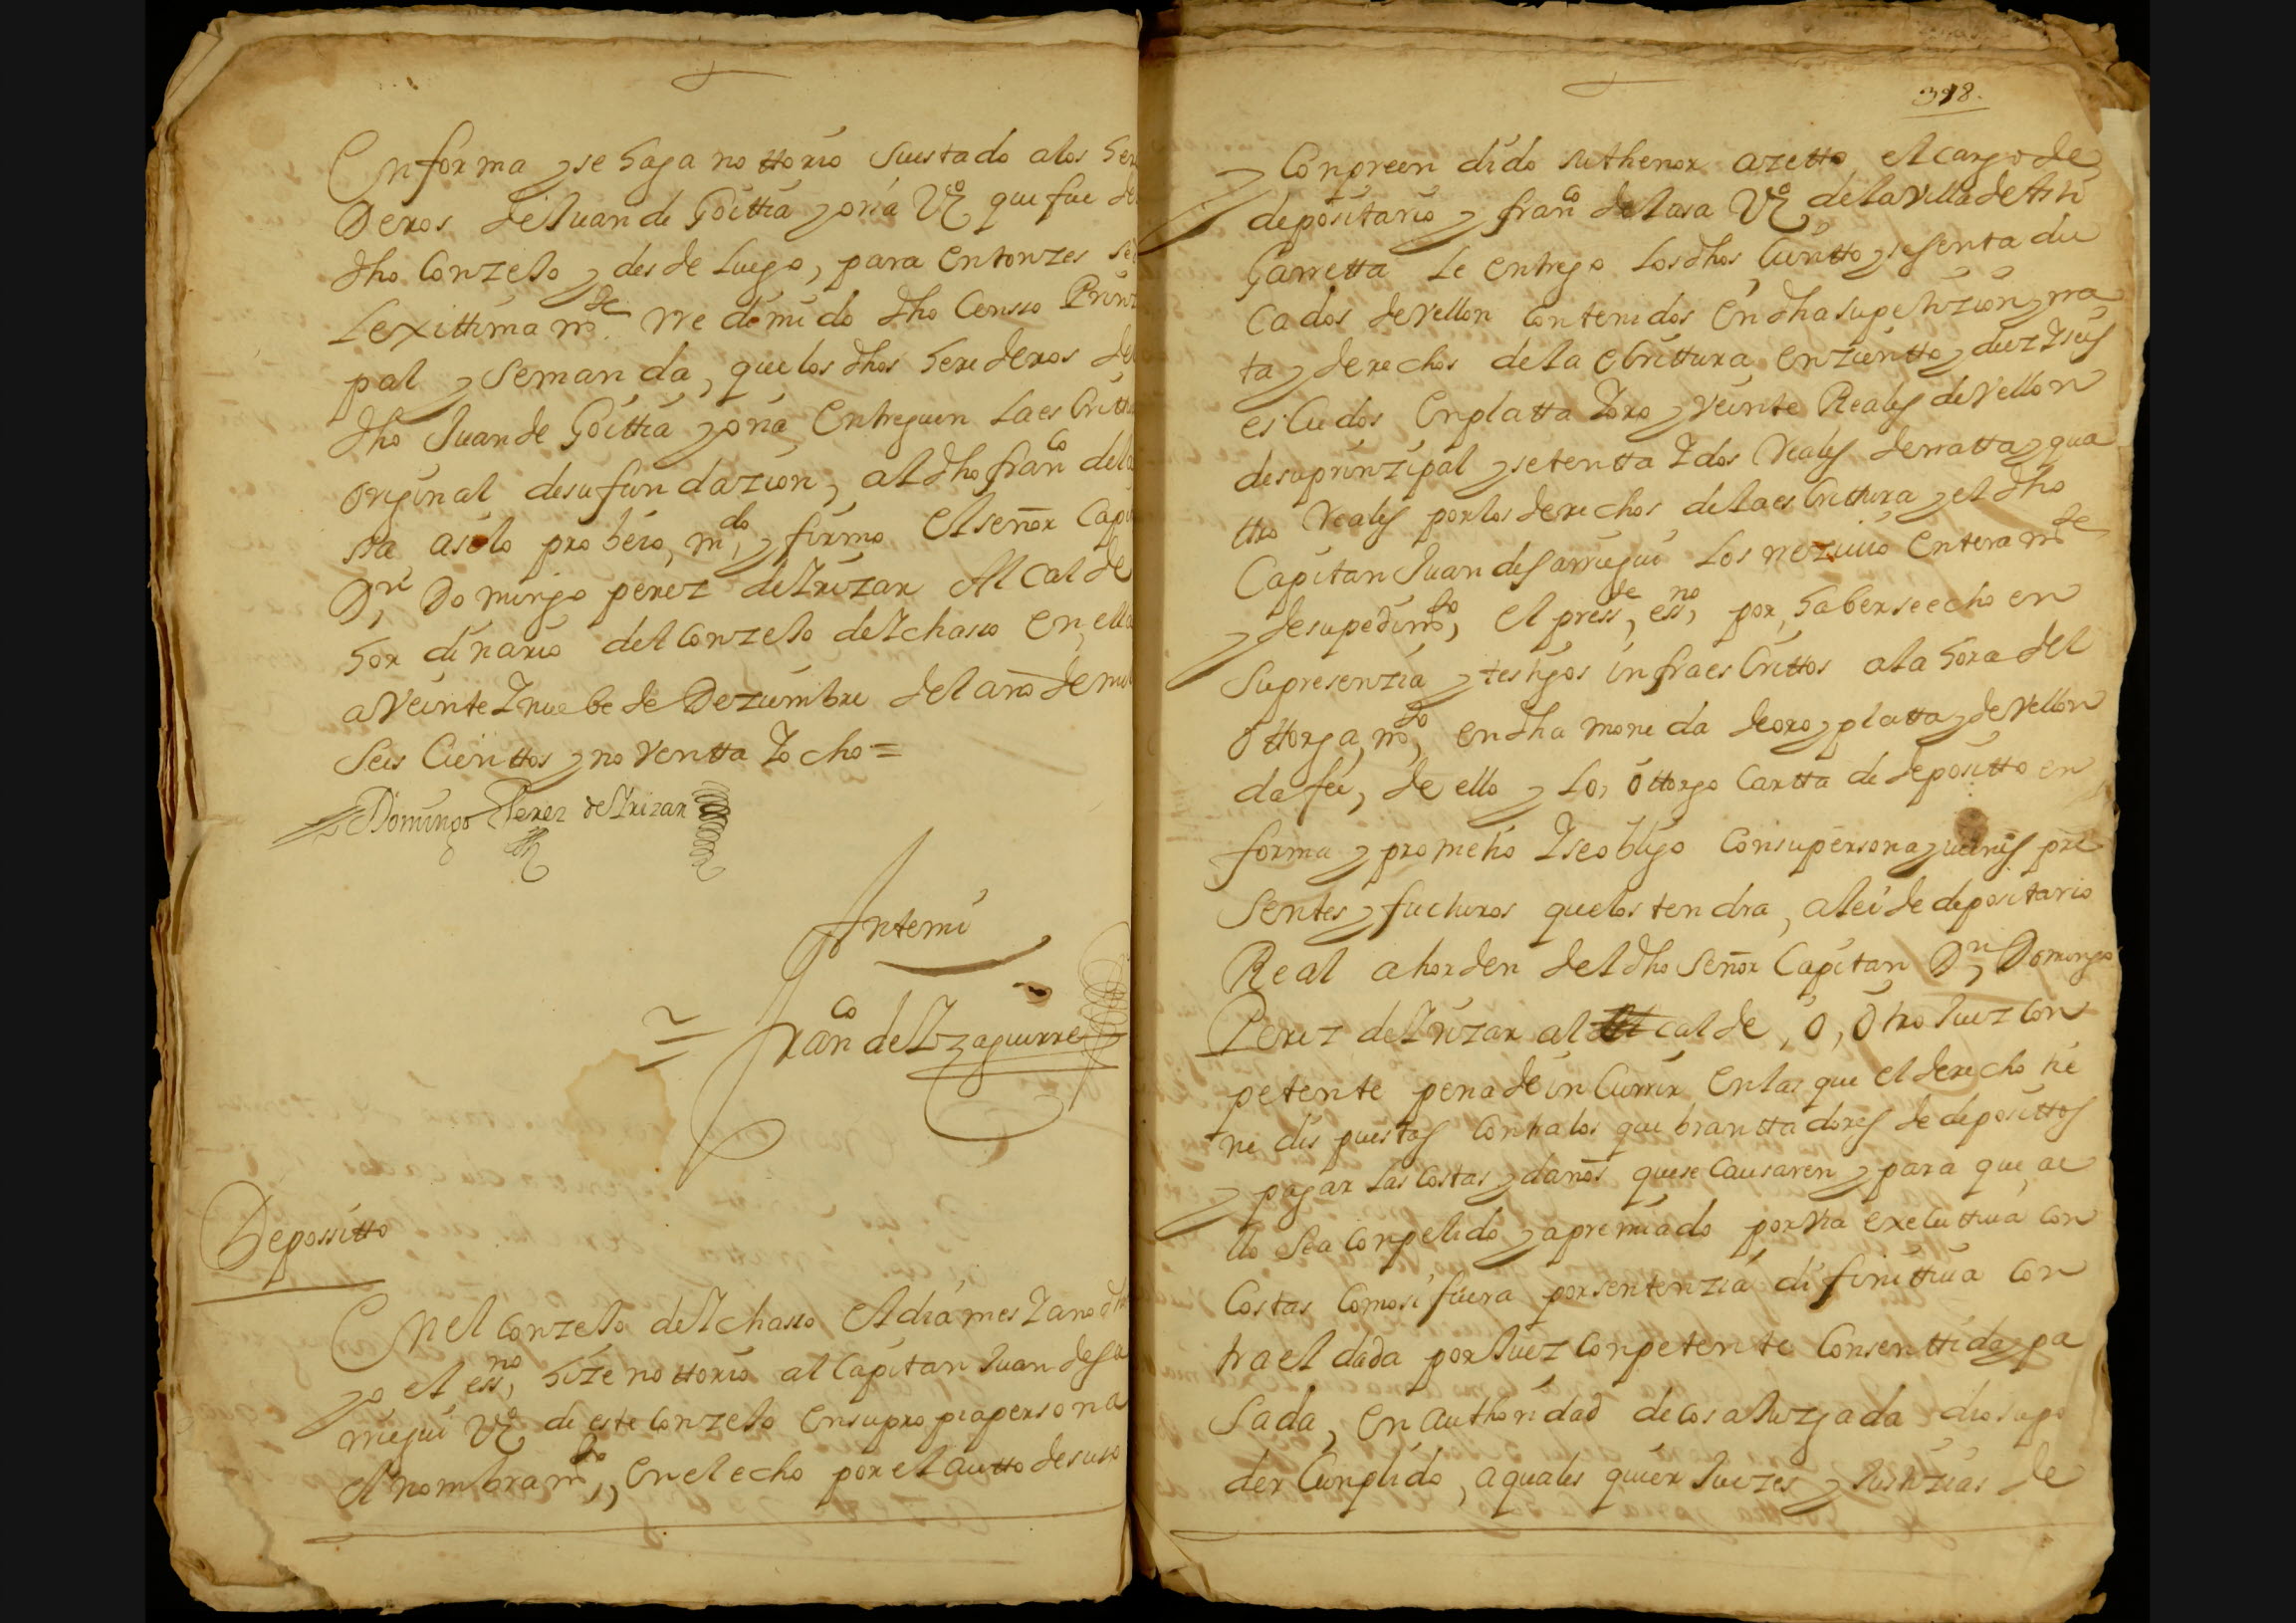 En forma y se haga nottorio Su estado a los here
Deros de Juan de Goittia y oria Vº que fue del
dho Conzejo y desde luego, para entonzes se
Lexittimamte rredemido dho Censso Prinzi
pal y Se manda, que los dhos herederos del
dho Juan de Goittia y oria Entreguen la escrittu
original de su fundazion, al dho franco de la
sa asi lo probeio, mdo, y firmo El señor Capi
Dn Domingo perez de Yrizar Alcalde
hordinario del Conzejo de Ychasso en, ella
a Veinte Y nuebe de Deziembre del año de mil
Seis Cienttos y noventta Y ocho =
Domingo Perez de Yrizar
Antemi
= Franco de Yzaguirre
Depossitto
En el Conzejo de Ychasso El dia mes Y ano dho
yo el essno, hize nottorio al Capitan Juan de Sa
rriegui Vº de este Conzejo en su propia persona
el nombramto, en el echo por el autto de suso
398.
y Conpreendido su thenor azetto el cargo de
depositario y franco de lasa Vº de la Villa de Asti
Garretta le entrego los dhos Cientto y sesenta du
Cados de Vellon Contenidos en dha su petizion y rra
ta y derechos de la escrittura en zientto y diez Y seis
escudos en platta Y oro y Veinte Reales de Vellon
de su prinzipal y setentta Y dos Reales de rratta y qua
ttro Reales por los derechos de la escrittura y el dho
Capitan Juan de Sarriegui los rreziuio enteramte
y de su pedimto, el presste, essno, por, haberse echo en
Su presenzia y testigos infraescrittos a la hora del
ottorgamto, en dha moneda de oro y platta y de Vellon
da fee, de ello y lo, ottorgo Cartta de depositto en
forma y prometio Y se obligo Con su persona y uienes pre
Sentes y fuchuros que los tendra, a lei de depositario
Real a horden del dho señor Capitan Dn Domingo
Perez de Yrizar alcalde, o, otro Juez Con
petente pena de in Currir en las que el derecho tie
ne dispuestas Contra los quebranttadores de deposittos
y pagar las Costas y daños que se Causaren y para que, ae
llo Sea Conpelido y apremiado por via executtiua Con
Costas Como si fuera por sentenzia difinittiua Con
tra el dada por Juez Conpetente Consenttida y pa
Sada, en authoridad de cosa Juzgada dio su po
der Cunplido, a quales quier Juezes y Justizias de